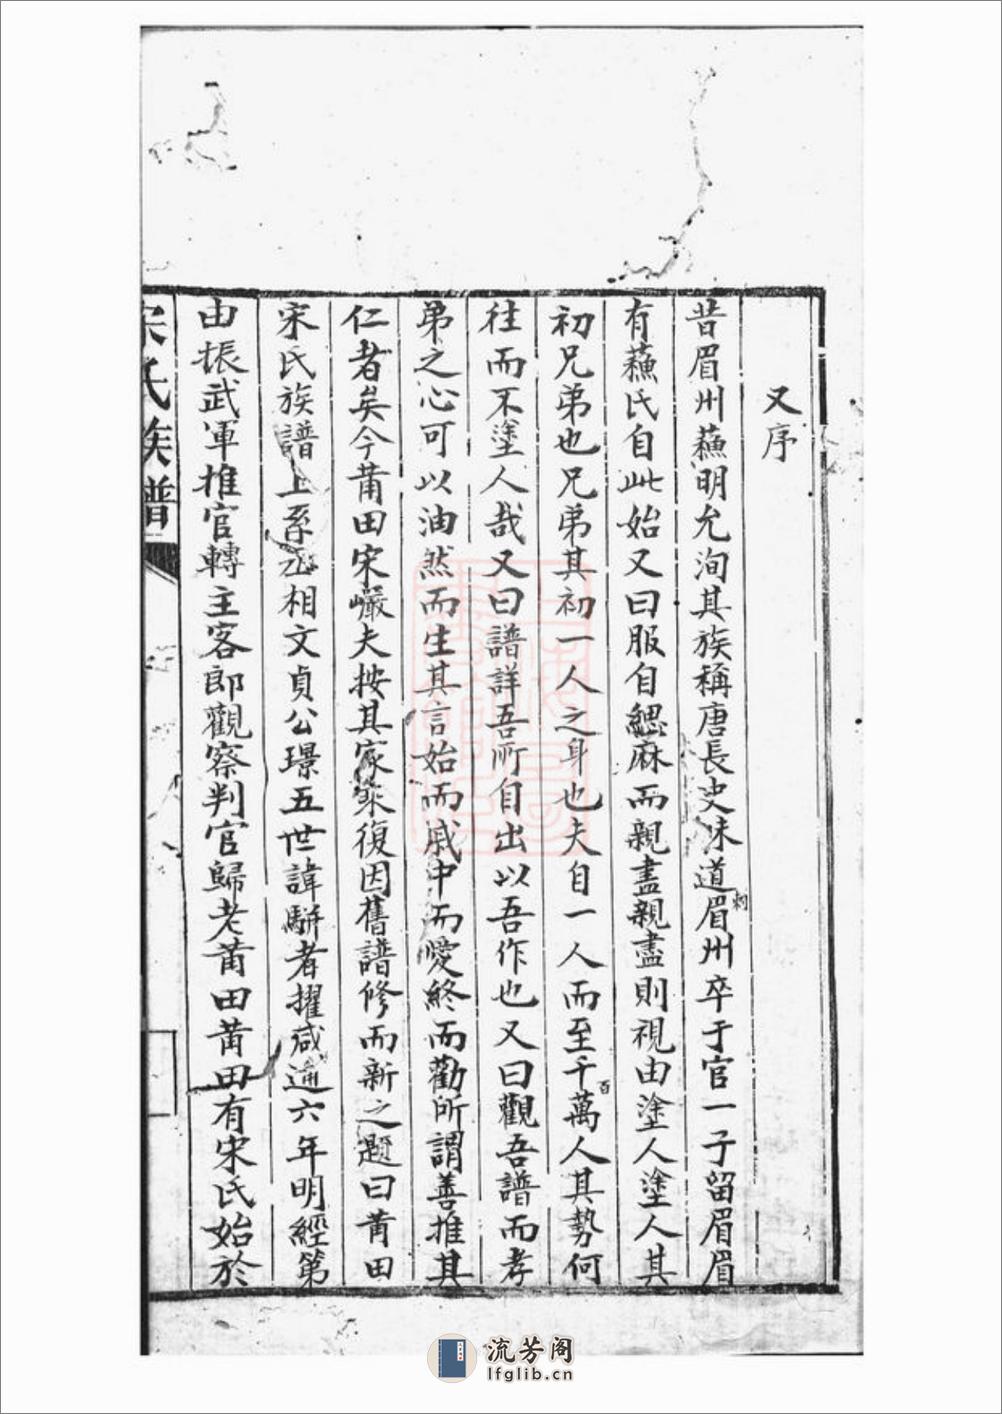 又序
昔眉州蘓明允洵其族稱唐長史味道刺眉州卒于官一子留眉眉
有蘓氏自此始又曰服自緦麻而親盡親盡則視由塗人塗人其
初兄弟也兄弟其初一人之身也夫自一人而至千百萬人其勢何
往而不塗人哉又曰譜詳吾所自出以吾作也又曰觀吾譜而孝
弟之心可以油然而生其言始而戚中而愛終而勸所謂善推其
仁者矣今莆田宋巖夫按其家乘復因舊譜修而新之題曰莆田
宋氏族譜上系丞相文貞公璟五世諱駢者擢咸通六年明經第
由振武軍推官轉主客郎觀察判官歸老莆田莆田有宋氏始於
宋氏族譜
流芳阁
lfglib.cn